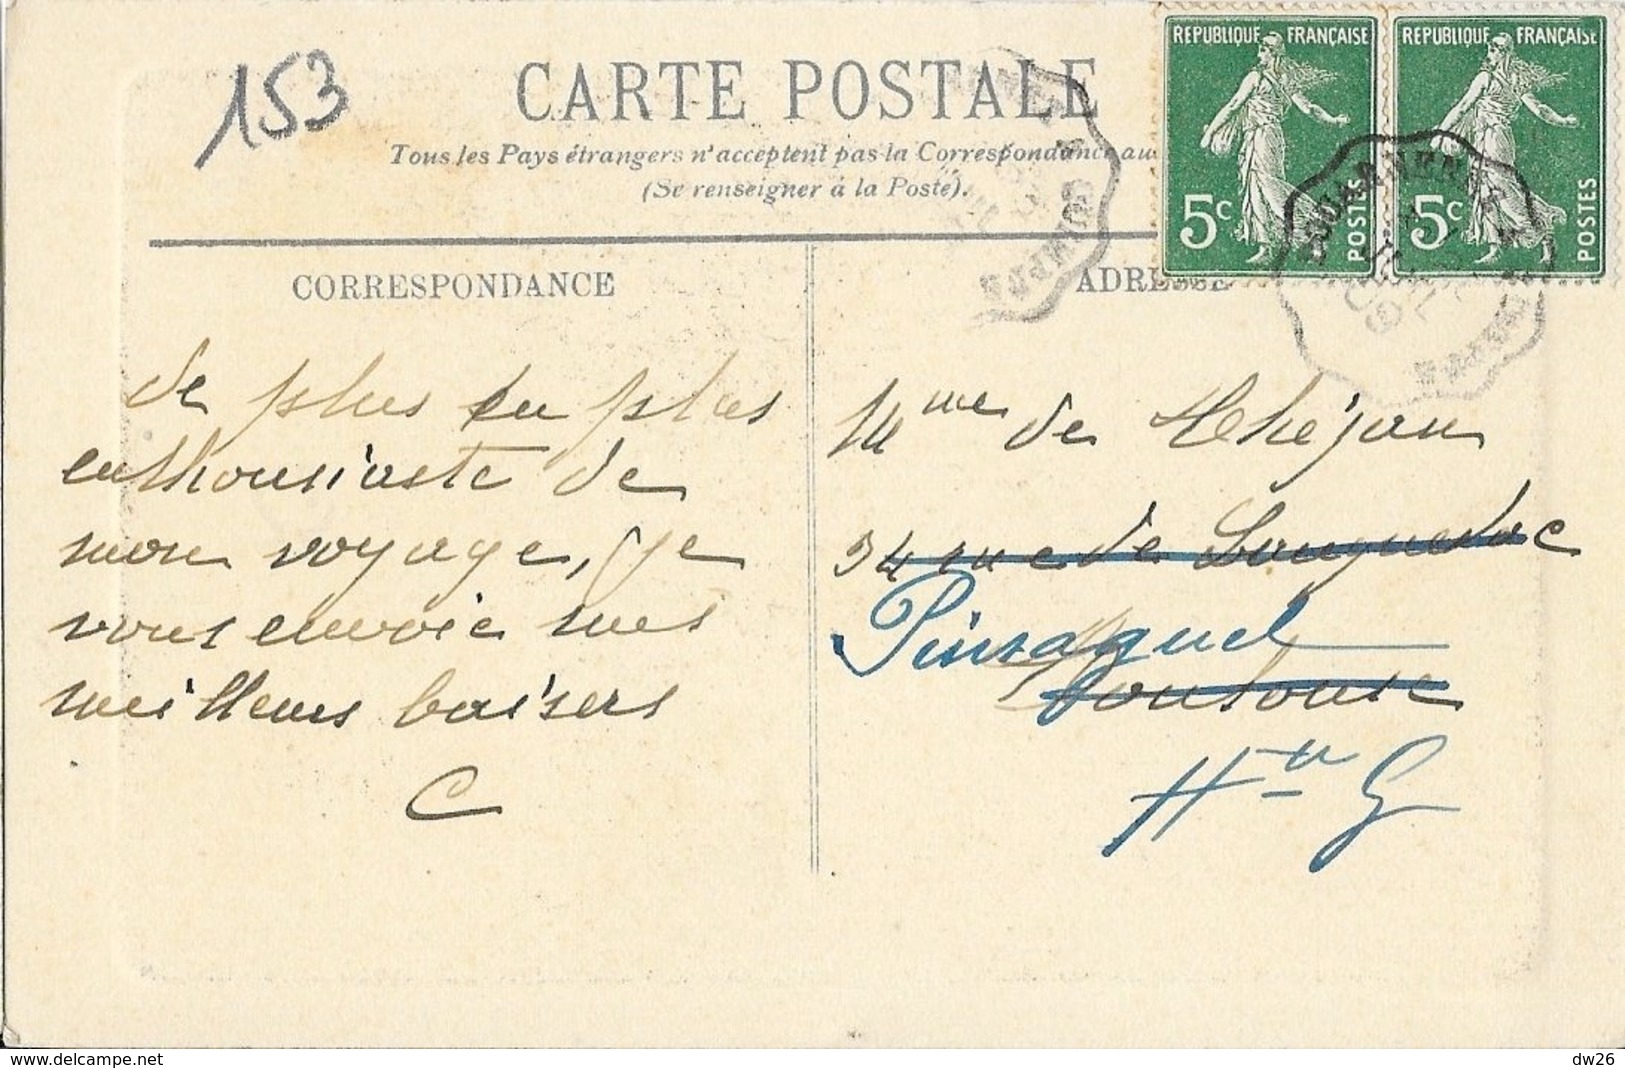 153
CARTE POSTALE
Tous les Pays étrangers n'acceptent pas la Correspondance au
(Se renseigner à la Poste).
REPUBLIQUE FRANÇAISE
5c
POSTES
REPUBLIQUE FRANÇAISE
5c
POSTES
DOUARNENEZ
QUIMPER
QUIMPER
CORRESPONDANCE
de plus en plus
enthousiaste de
mon voyage, je
vous envoie mes
meilleurs baisers
C
ADRESSE
Mme de
34 rue de Languedoc
Pinsaguel
Toulouse
Hte G
www.delcampe.net
dw26